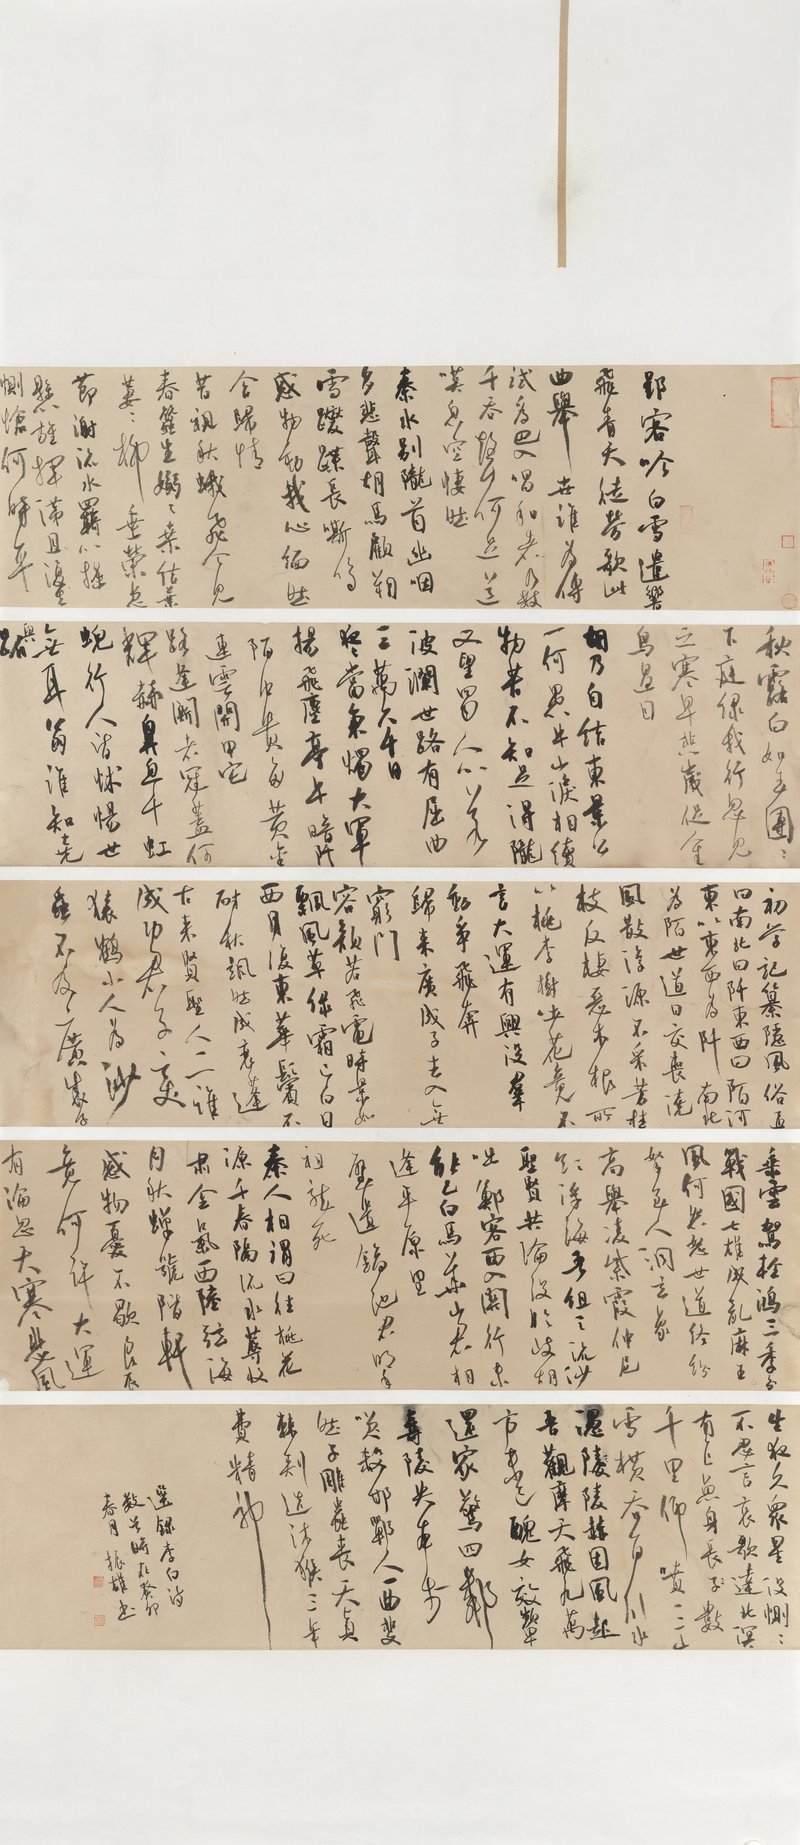 郢客吟白雪遺響
飛青天徒勞歌此
曲舉世誰為傳
試為巴人唱和者乃數
千吞聲何足道
嘆息空悽然
秦水別隴首幽咽
多悲聲胡馬顧朔
雪躞蹀長嘶鳴
感物動我心緬然
含歸情
昔視秋蛾飛今見
春蠶生嫋〻桑結葉
萋〻柳垂榮急
節謝流水羈心搖
懸旌揮涕且復去
惻愴何時平
秋露白如玉團〻
下庭綠我行忽見
之寒早悲歲促人生
鳥過目
胡乃自結束景公
一何愚牛山淚相續
物苦不知足得隴
又望蜀人心若
波瀾世路有屈曲
三萬六千日
夜〻當秉燭大車
揚飛塵亭午暗阡
陌中貴多黃金
連雲開甲宅
路逢鬥者冠蓋何
輝赫鼻息干虹
蜺行人皆怵惕世
無耳翁誰知堯
與跖
初學記纂隨風俗通
曰南北曰阡東西曰陌河
東以東西為阡南北
為陌世道日交喪澆
風散淳源不采芳桂
枝反棲惡木根所
以桃李樹吐花竟不
言大運有興沒羣
動爭飛奔
歸來廣成子去入無
窮門
容顏若飛電時景如
飄風草綠霜已白日
西月復東華鬢不
耐秋颯然成衰蓬
古來賢聖人一一誰
成功君子變
猿鶴小人為沙
蟲不及廣成子
乘雲駕輕鴻三季分
戰國七雄成亂麻王
風何怨怒世道終紛
拏至人洞玄象
高舉凌紫霞仲尼
欲浮海吾祖之流沙
聖賢共淪沒臨歧胡
咄鄭客西入關行未
能已白馬華山君相
逢平原里
璧遺鎬池君明年
祖龍死
秦人相謂曰往桃花
源千春隔流水蓐收
肅金氣西陸弦海
月秋蟬號階軒
感物憂不歇良辰
竟何許大運
有淪忽天寒悲風
生夜久眾星沒惻〻
不忍言哀歌達北溟
有巨魚身長數
千里仰噴三山
雪橫吞百川水
憑陵隨因風起
吾觀摩天飛九萬
方未已醜女效顰
還家驚四鄰
壽陵失本步
笑殺邯鄲人一曲斐
然子雕蟲喪天真
棘刺造沐猴三年
費精神
選錄李白詩
數首時在癸卯
春月振雄書